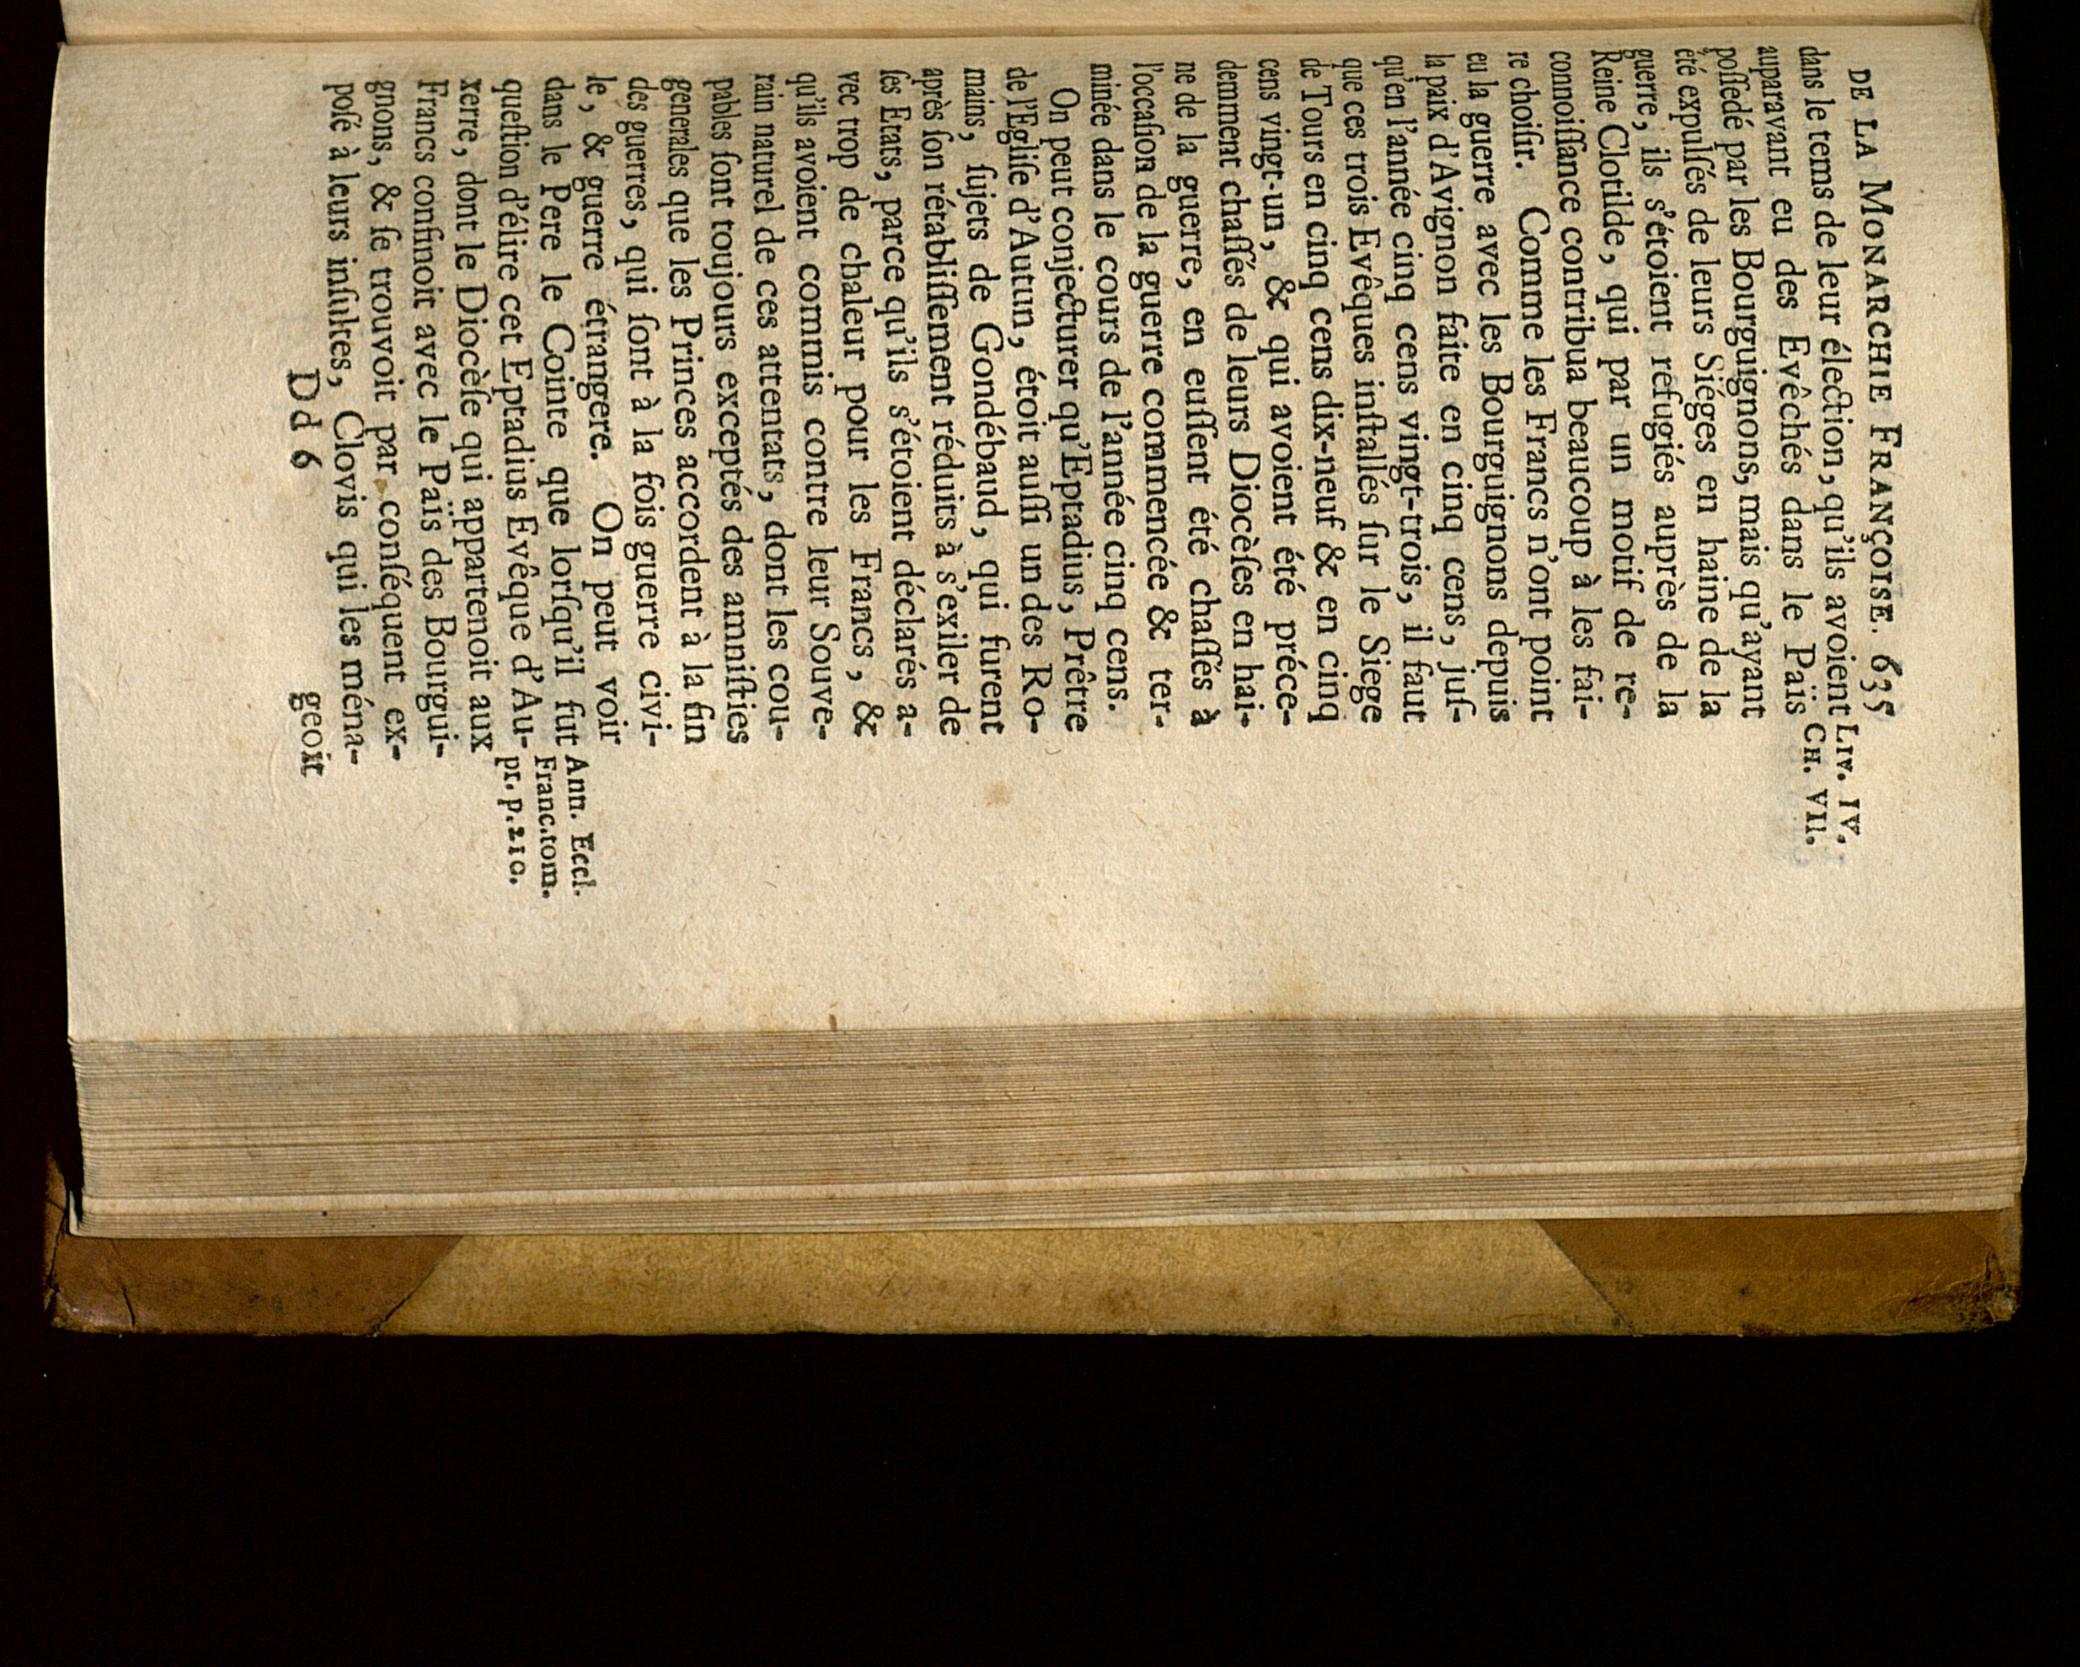 DE LA MONARCHIE FRANÇOISE. 635
dans le tems de leur élection, qu'ils avoient
LIV. IV.
auparavant eu des Evêchés dans le Païs
CH. VII.
possedé par les Bourguignons, mais qu'ayant
été expulsés de leurs Siéges en haine de la
guerre, ils s'étoient refugiés auprès de la
Reine Clotilde, qui par un motif de re-
connoissance contribua beaucoup à les fai-
re choisir. Comme les Francs n'ont point
eu la guerre avec les Bourguignons depuis
la paix d'Avignon faite en cinq cens, jus-
qu'en l'année cinq cens vingt-trois, il faut
que ces trois Evêques installés sur le Siege
de Tours en cinq cens dix-neuf & en cinq
cens vingt-un, & qui avoient été préce-
demment chassés de leurs Diocèses en hai-
ne de la guerre, en eussent été chassés à
l'occasion de la guerre commencée & ter-
minée dans le cours de l'année cinq cens.
On peut conjecturer qu'Eptadius, Prêtre
de l'Eglise d'Autun, étoit aussi un des Ro-
mains, sujets de Gondébaud, qui furent
après son rétablissement réduits à s'exiler de
ses Etats, parce qu'ils s'étoient déclarés a-
vec trop de chaleur pour les Francs, &
qu'ils avoient commis contre leur Souve-
rain naturel de ces attentats, dont les cou-
pables sont toujours exceptés des amnisties
generales que les Princes accordent à la fin
des guerres, qui sont à la fois guerre civi-
le, & guerre étrangere. On peut voir
dans le Pere le Cointe que lorsqu'il fut
Ann. Eccl.
Franc.tom.
question d'élire cet Eptadius Evêque d'Au-
pr. p. 210.
xerre, dont le Diocèse qui appartenoit aux
Francs confinoit avec le Païs des Bourgui-
gnons, & se trouvoit par conséquent ex-
posé à leurs insultes, Clovis qui les ména-
Dd 6
geoit